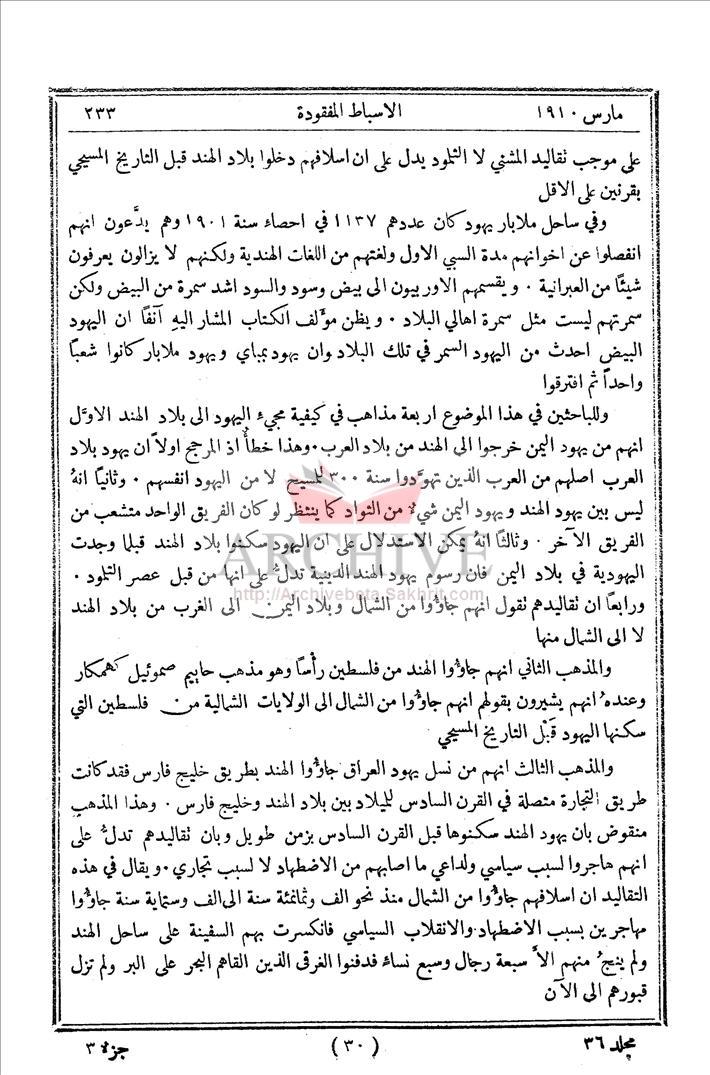 مارس ١٩١٠ الاسباط المفقودة ٢٣٣
على موجب تقاليد المشني لا التلمود يدل على ان اسلافهم دخلوا بلاد الهند قبل التاريخ المسيحي
بقرنين على الاقل
وفي ساحل ملابار يهود كان عددهم ١١٣٧ في احصاء سنة ١٩٠١ وهم يدَّعون انهم
انفصلوا عن اخوانهم مدة السبي الاول ولغتهم من اللغات الهندية ولكنهم لا يزالون يعرفون
شيئًا من العبرانية ٠ ويقسمهم الاوربيون الى بيض وسود والسود اشد سمرة من البيض ولكن
سمرتهم ليست مثل سمرة اهالي البلاد ٠ ويظن مؤلف الكتاب المشار اليهِ آنفًا ان اليهود
البيض احدث من اليهود السمر في تلك البلاد وان يهود بمباي ويهود ملابار كانوا شعبًا
واحداً ثم افترقوا
وللباحثين في هذا الموضوع اربعة مذاهب في كيفية مجيء اليهود الى بلاد الهند الاوَّل
انهم من يهود اليمن خرجوا الى الهند من بلاد العرب ٠ وهذا خطأٌ اذ المرجح اولاً ان يهود بلاد
العرب اصلهم من العرب الذين تهوَّدوا سنة ٣٠٠ للمسيح لا من اليهود انفسهم ٠ وثانيًا انهُ
ليس بين يهود الهند ويهود اليمن شيءٌ من التواد كما ينتظر لو كان الفريق الواحد متشعب من
الفريق الآخر ٠ وثالثًا انهُ يمكن الاستدلال على ان اليهود سكنوا بلاد الهند قبلما وجدت
اليهودية في بلاد اليمن فان رسوم يهود الهند الدينية تدلُّ على انها من قبل عصر التلمود ٠
ورابعاً ان تقاليدهم تقول انهم جاؤوا من الشمال وبلاد اليمن الى الغرب من بلاد الهند
لا الى الشمال منها
والمذهب الثاني انهم جاؤوا الهند من فلسطين رأسًا وهو مذهب حاييم صموئيل كهمكار
وعندهُ انهم يشيرون بقولهم انهم جاؤوا من الشمال الى الولايات الشمالية من فلسطين التي
سكنها اليهود قَبْل التاريخ المسيحي
والمذهب الثالث انهم من نسل يهود العراق جاؤوا الهند بطريق خليج فارس فقد كانت
طريق التجارة متصلة في القرن السادس للميلاد بين بلاد الهند وخليج فارس ٠ وهذا المذهب
منقوض بان يهود الهند سكنوها قبل القرن السادس بزمن طويل وبان تقاليدهم تدلُّ على
انهم هاجروا لسبب سياسي ولداعي ما اصابهم من الاضطهاد لا لسبب تجاري ٠ ويقال في هذه
التقاليد ان اسلافهم جاؤوا من الشمال منذ نحو الف وثمانمئة سنة الى الف وستماية سنة جاؤوا
مهاجرين بسبب الاضطهاد والانقلاب السياسي فانكسرت بهم السفينة على ساحل الهند
ولم ينجُ منهم الاَّ سبعة رجال وسبع نساءٍ فدفنوا الغرقى الذين القاهم البحر على البر ولم تزل
قبورهم الى الآن
مجلد ٣٦ (٣٠) جزء ٣
ARCHIVE
http://Archivebeta.Sakhrit.com